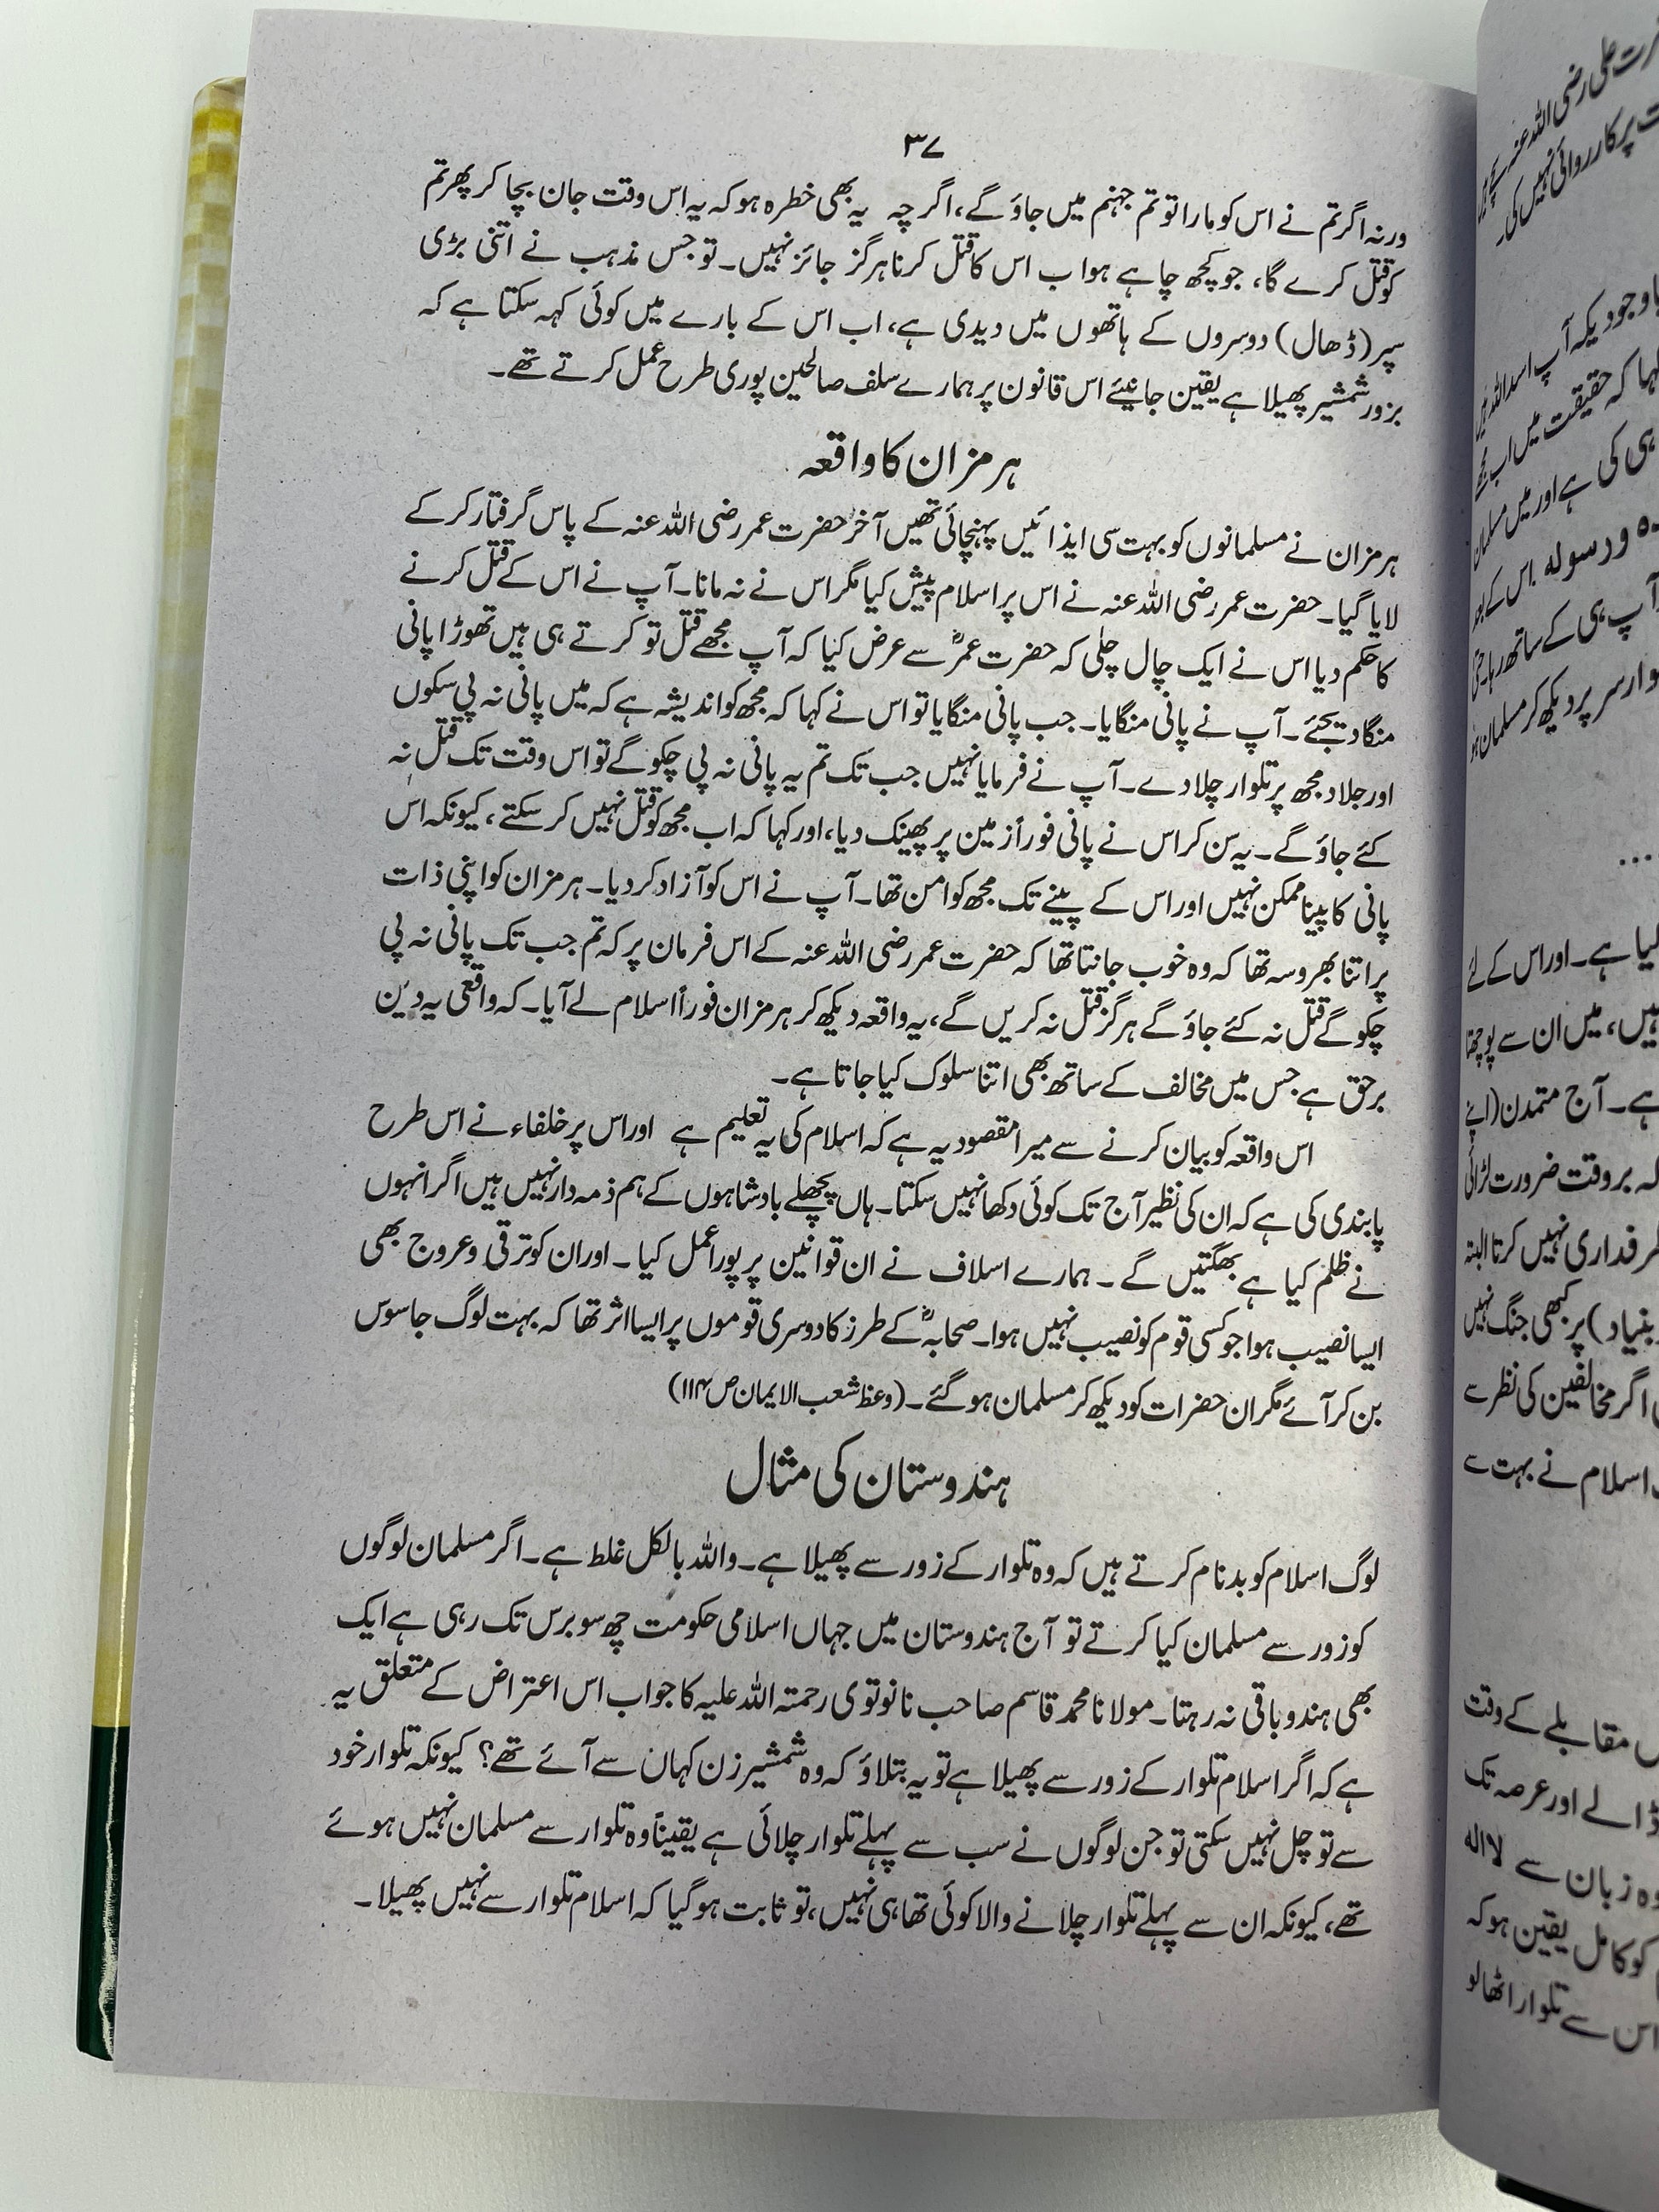 ۳۷
ورنہ اگر تم نے اس کو مارا تو تم جہنم میں جاؤ گے، اگر چہ یہ بھی خطرہ ہو کہ یہ اس وقت جان بچا کر پھر تم
کو قتل کرے گا، جو کچھ چاہے ہو اب اس کا قتل کرنا ہرگز جائز نہیں۔ تو جس مذہب نے اتنی بڑی
سپر (ڈھال) دوسروں کے ہاتھوں میں دیدی ہے، اب اس کے بارے میں کوئی کہہ سکتا ہے کہ
بزور شمشیر پھیلا ہے یقین جانیئے اس قانون پر ہمارے سلف صالحین پوری طرح عمل کرتے تھے۔
ہرمزان کا واقعہ
ہرمزان نے مسلمانوں کو بہت سی ایذائیں پہنچائی تھیں آخر حضرت عمر رضی اللہ عنہ کے پاس گرفتار کر کے
لایا گیا۔ حضرت عمر رضی اللہ عنہ نے اس پر اسلام پیش کیا مگر اس نے نہ مانا۔ آپ نے اس کے قتل کرنے
کا حکم دیا اس نے ایک چال چلی کہ حضرت عمرؓ سے عرض کیا کہ آپ مجھے قتل تو کرتے ہی ہیں تھوڑا پانی
منگا دیجئے۔ آپ نے پانی منگایا۔ جب پانی منگایا تو اس نے کہا کہ مجھ کو اندیشہ ہے کہ میں پانی نہ پی سکوں
اور جلاد مجھ پر تلوار چلا دے۔ آپ نے فرمایا نہیں جب تک تم یہ پانی نہ پی چکو گے تو اس وقت تک قتل نہ
کئے جاؤ گے۔ یہ سن کر اس نے پانی فوراً زمین پر پھینک دیا، اور کہا کہ اب مجھ کو قتل نہیں کر سکتے، کیونکہ اس
پانی کا پینا ممکن نہیں اور اس کے پینے تک مجھ کو امن تھا۔ آپ نے اس کو آزاد کر دیا۔ ہرمزان کو اپنی ذات
پر اتنا بھروسہ تھا کہ وہ خوب جانتا تھا کہ حضرت عمر رضی اللہ عنہ کے اس فرمان پر کہ تم جب تک پانی نہ پی
چکو گے قتل نہ کئے جاؤ گے ہرگز قتل نہ کریں گے، یہ واقعہ دیکھ کر ہرمزان فوراً اسلام لے آیا۔ کہ واقعی یہ دین
برحق ہے جس میں مخالف کے ساتھ بھی اتنا سلوک کیا جاتا ہے۔
اس واقعہ کو بیان کرنے سے میرا مقصود یہ ہے کہ اسلام کی یہ تعلیم ہے اور اس پر خلفاء نے اس طرح
پابندی کی ہے کہ ان کی نظیر آج تک کوئی دکھا نہیں سکتا۔ ہاں پچھلے بادشاہوں کے ہم ذمہ دار نہیں ہیں اگر انہوں
نے ظلم کیا ہے بھگتیں گے۔ ہمارے اسلاف نے ان قوانین پر پورا عمل کیا۔ اور ان کو ترقی و عروج بھی
ایسا نصیب ہوا جو کسی قوم کو نصیب نہیں ہوا۔ صحابہؓ کے طرز کا دوسری قوموں پر ایسا اثر تھا کہ بہت لوگ جاسوس
بن کر آئے مگر ان حضرات کو دیکھ کر مسلمان ہو گئے۔ (وعظ شعب الایمان ص ۱۱۴)
ہندوستان کی مثال
لوگ اسلام کو بدنام کرتے ہیں کہ وہ تلوار کے زور سے پھیلا ہے۔ واللہ بالکل غلط ہے۔ اگر مسلمان لوگوں
کو زور سے مسلمان کیا کرتے تو آج ہندوستان میں جہاں اسلامی حکومت چھ سو برس تک رہی ہے ایک
بھی ہندو باقی نہ رہتا۔ مولانا محمد قاسم صاحب نانوتوی رحمتہ اللہ علیہ کا جواب اس اعتراض کے متعلق یہ
ہے کہ اگر اسلام تلوار کے زور سے پھیلا ہے تو یہ بتلاؤ کہ وہ شمشیر زن کہاں سے آئے تھے؟ کیونکہ تلوار خود
سے تو چل نہیں سکتی تو جن لوگوں نے سب سے پہلے تلوار چلائی ہے یقیناً وہ تلوار سے مسلمان نہیں ہوئے
تھے، کیونکہ ان سے پہلے تلوار چلانے والا کوئی تھا ہی نہیں، تو ثابت ہو گیا کہ اسلام تلوار سے نہیں پھیلا۔
رضی اللہ عنہ
پر کارروائی نہیں کی۔
باوجود یکہ آپ اسد اللہ ہیں
کہا کہ حقیقت میں اب مجھے
ہی کی ہے اور میں مسلمان
ورسوله اس کے بعد
آپ ہی کے ساتھ رہا۔
سر پر دیکھ کر مسلمان
...
لیا ہے۔ اور اس کے لئے
ہیں، میں ان سے پوچھتا
ہے۔ آج متمدن (اپنے
کہ بروقت ضرورت لڑائی
طرفداری نہیں کرتا البتہ
بنیاد) پر کبھی جنگ نہیں
اگر مخالفین کی نظر سے
اسلام نے بہت سے
مقابلے کے وقت
ڈالے اور عرصہ تک
وہ زبان سے لا الہ
کو کامل یقین ہو کہ
اس سے تلوار اٹھا لو